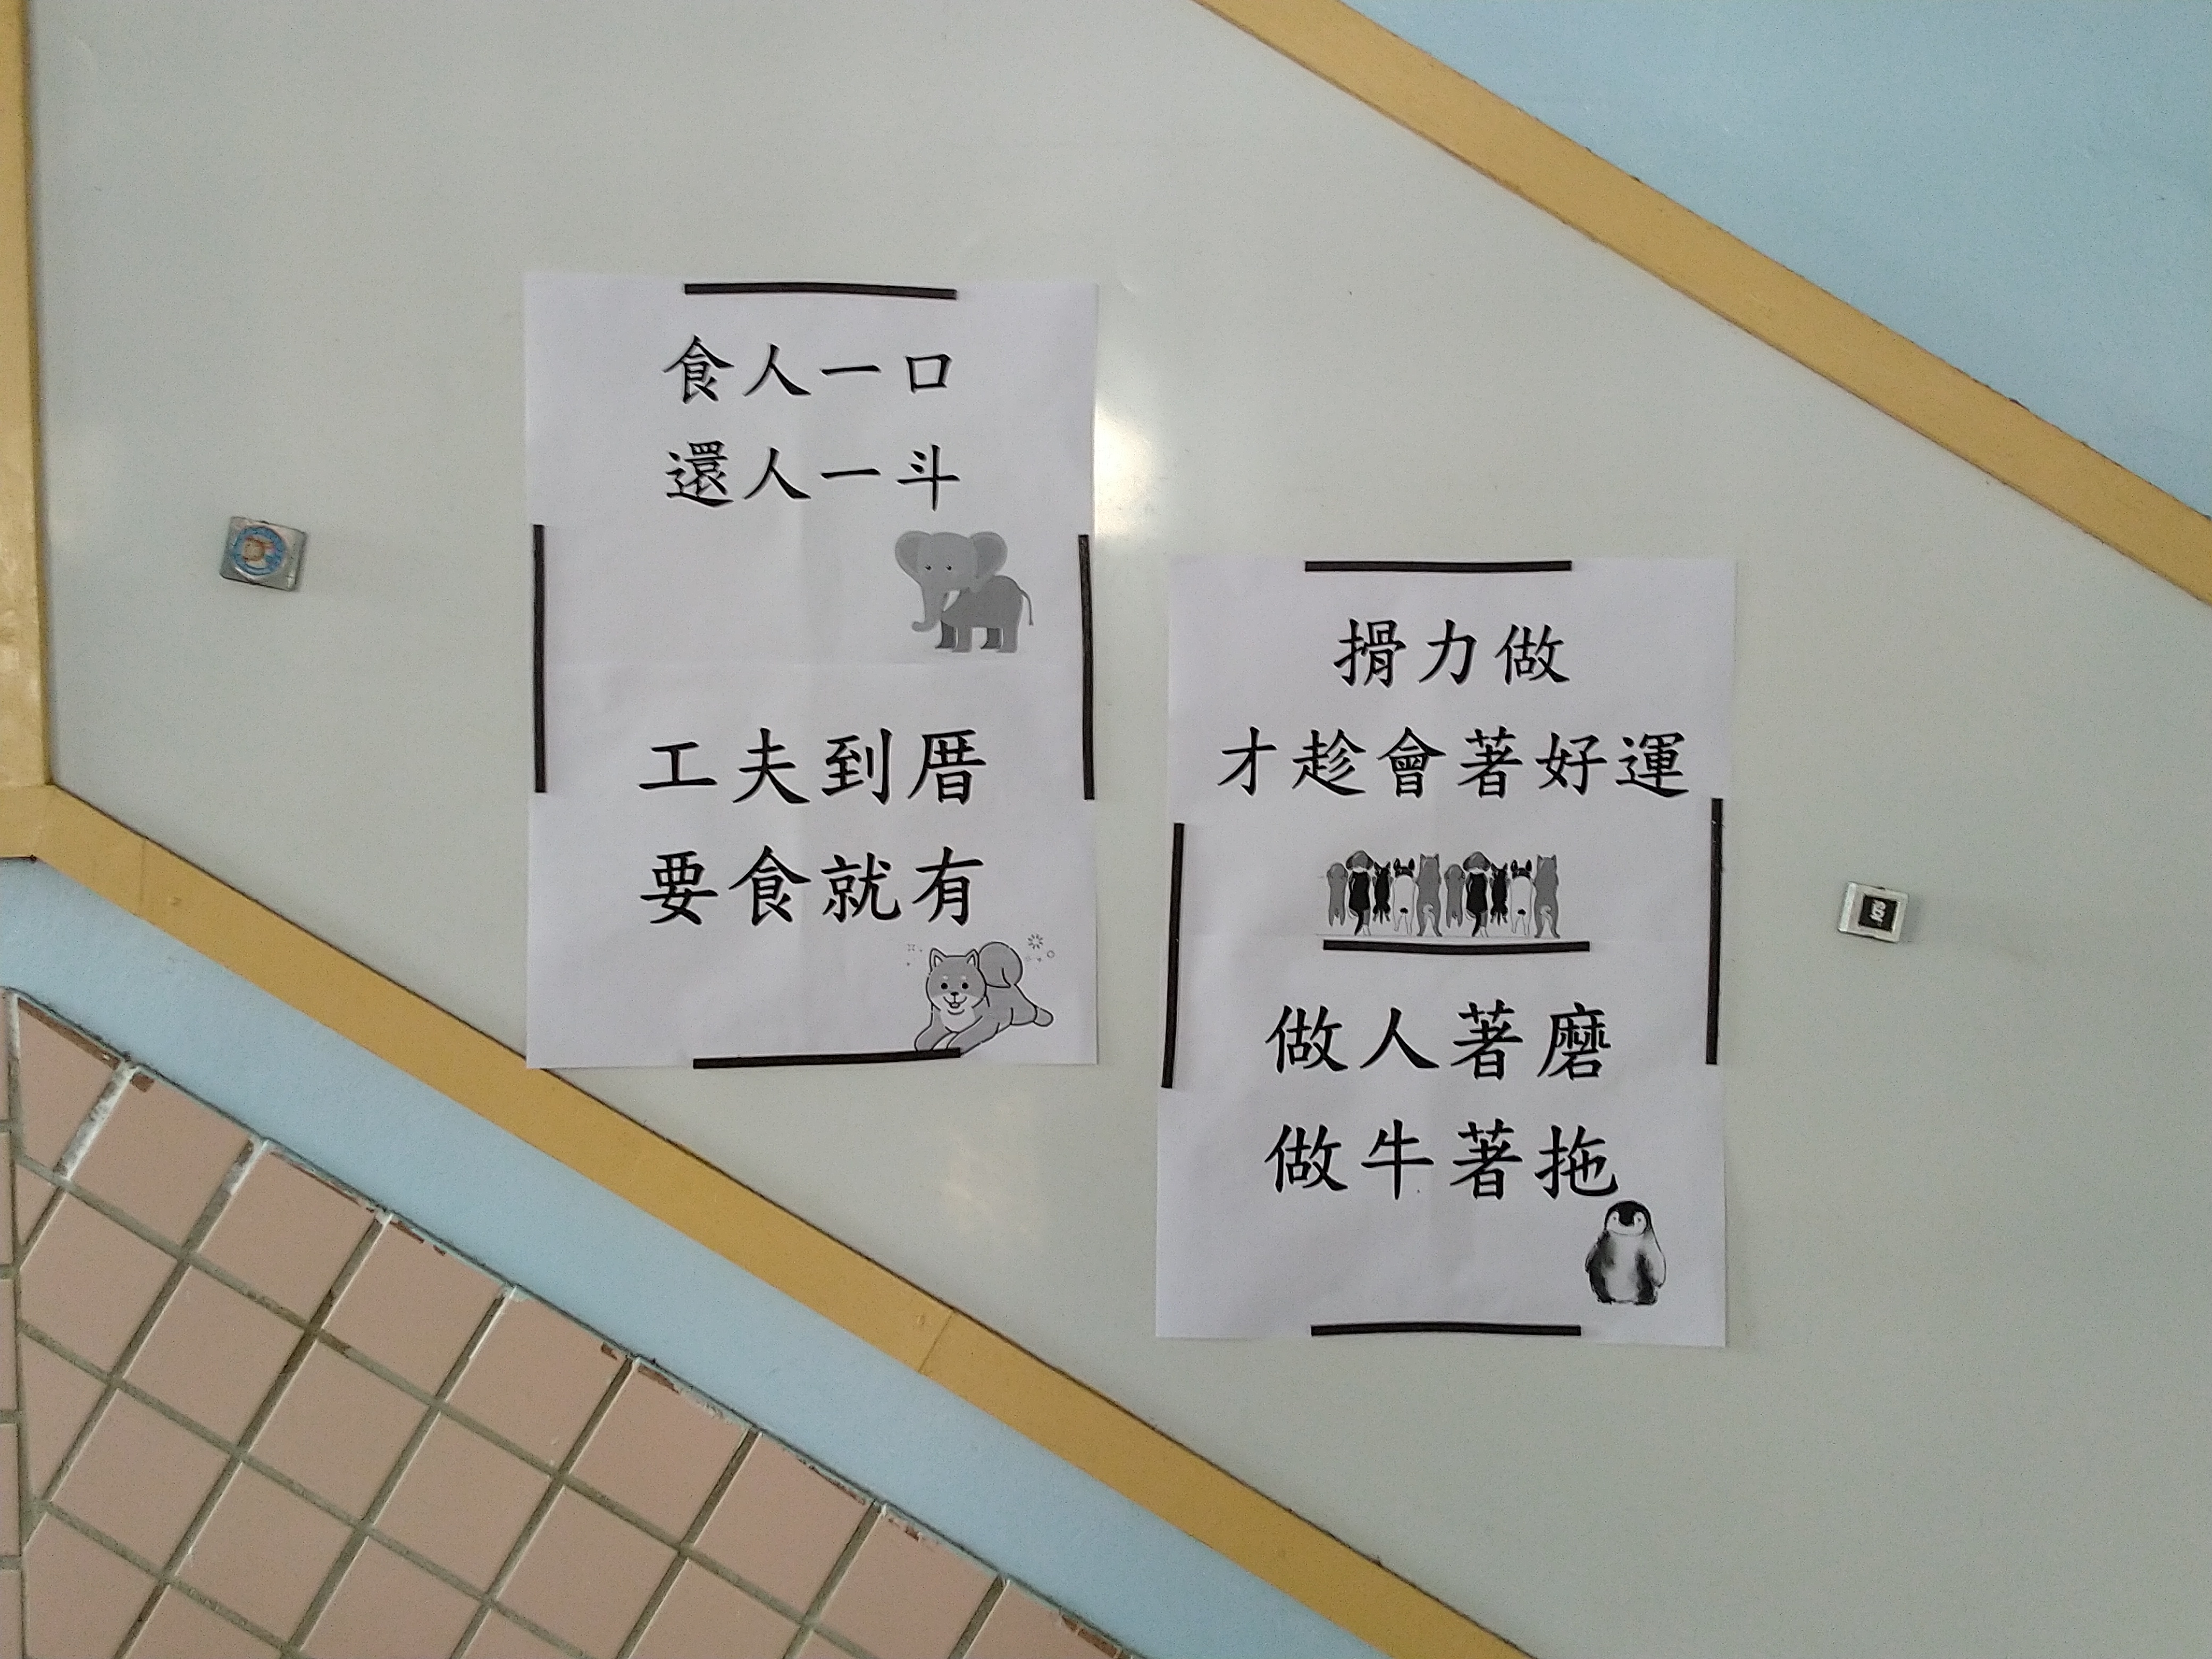 食人一口
還人一斗
工夫到厝
要食就有
搰力做
才趁會著好運
做人著磨
做牛著拖